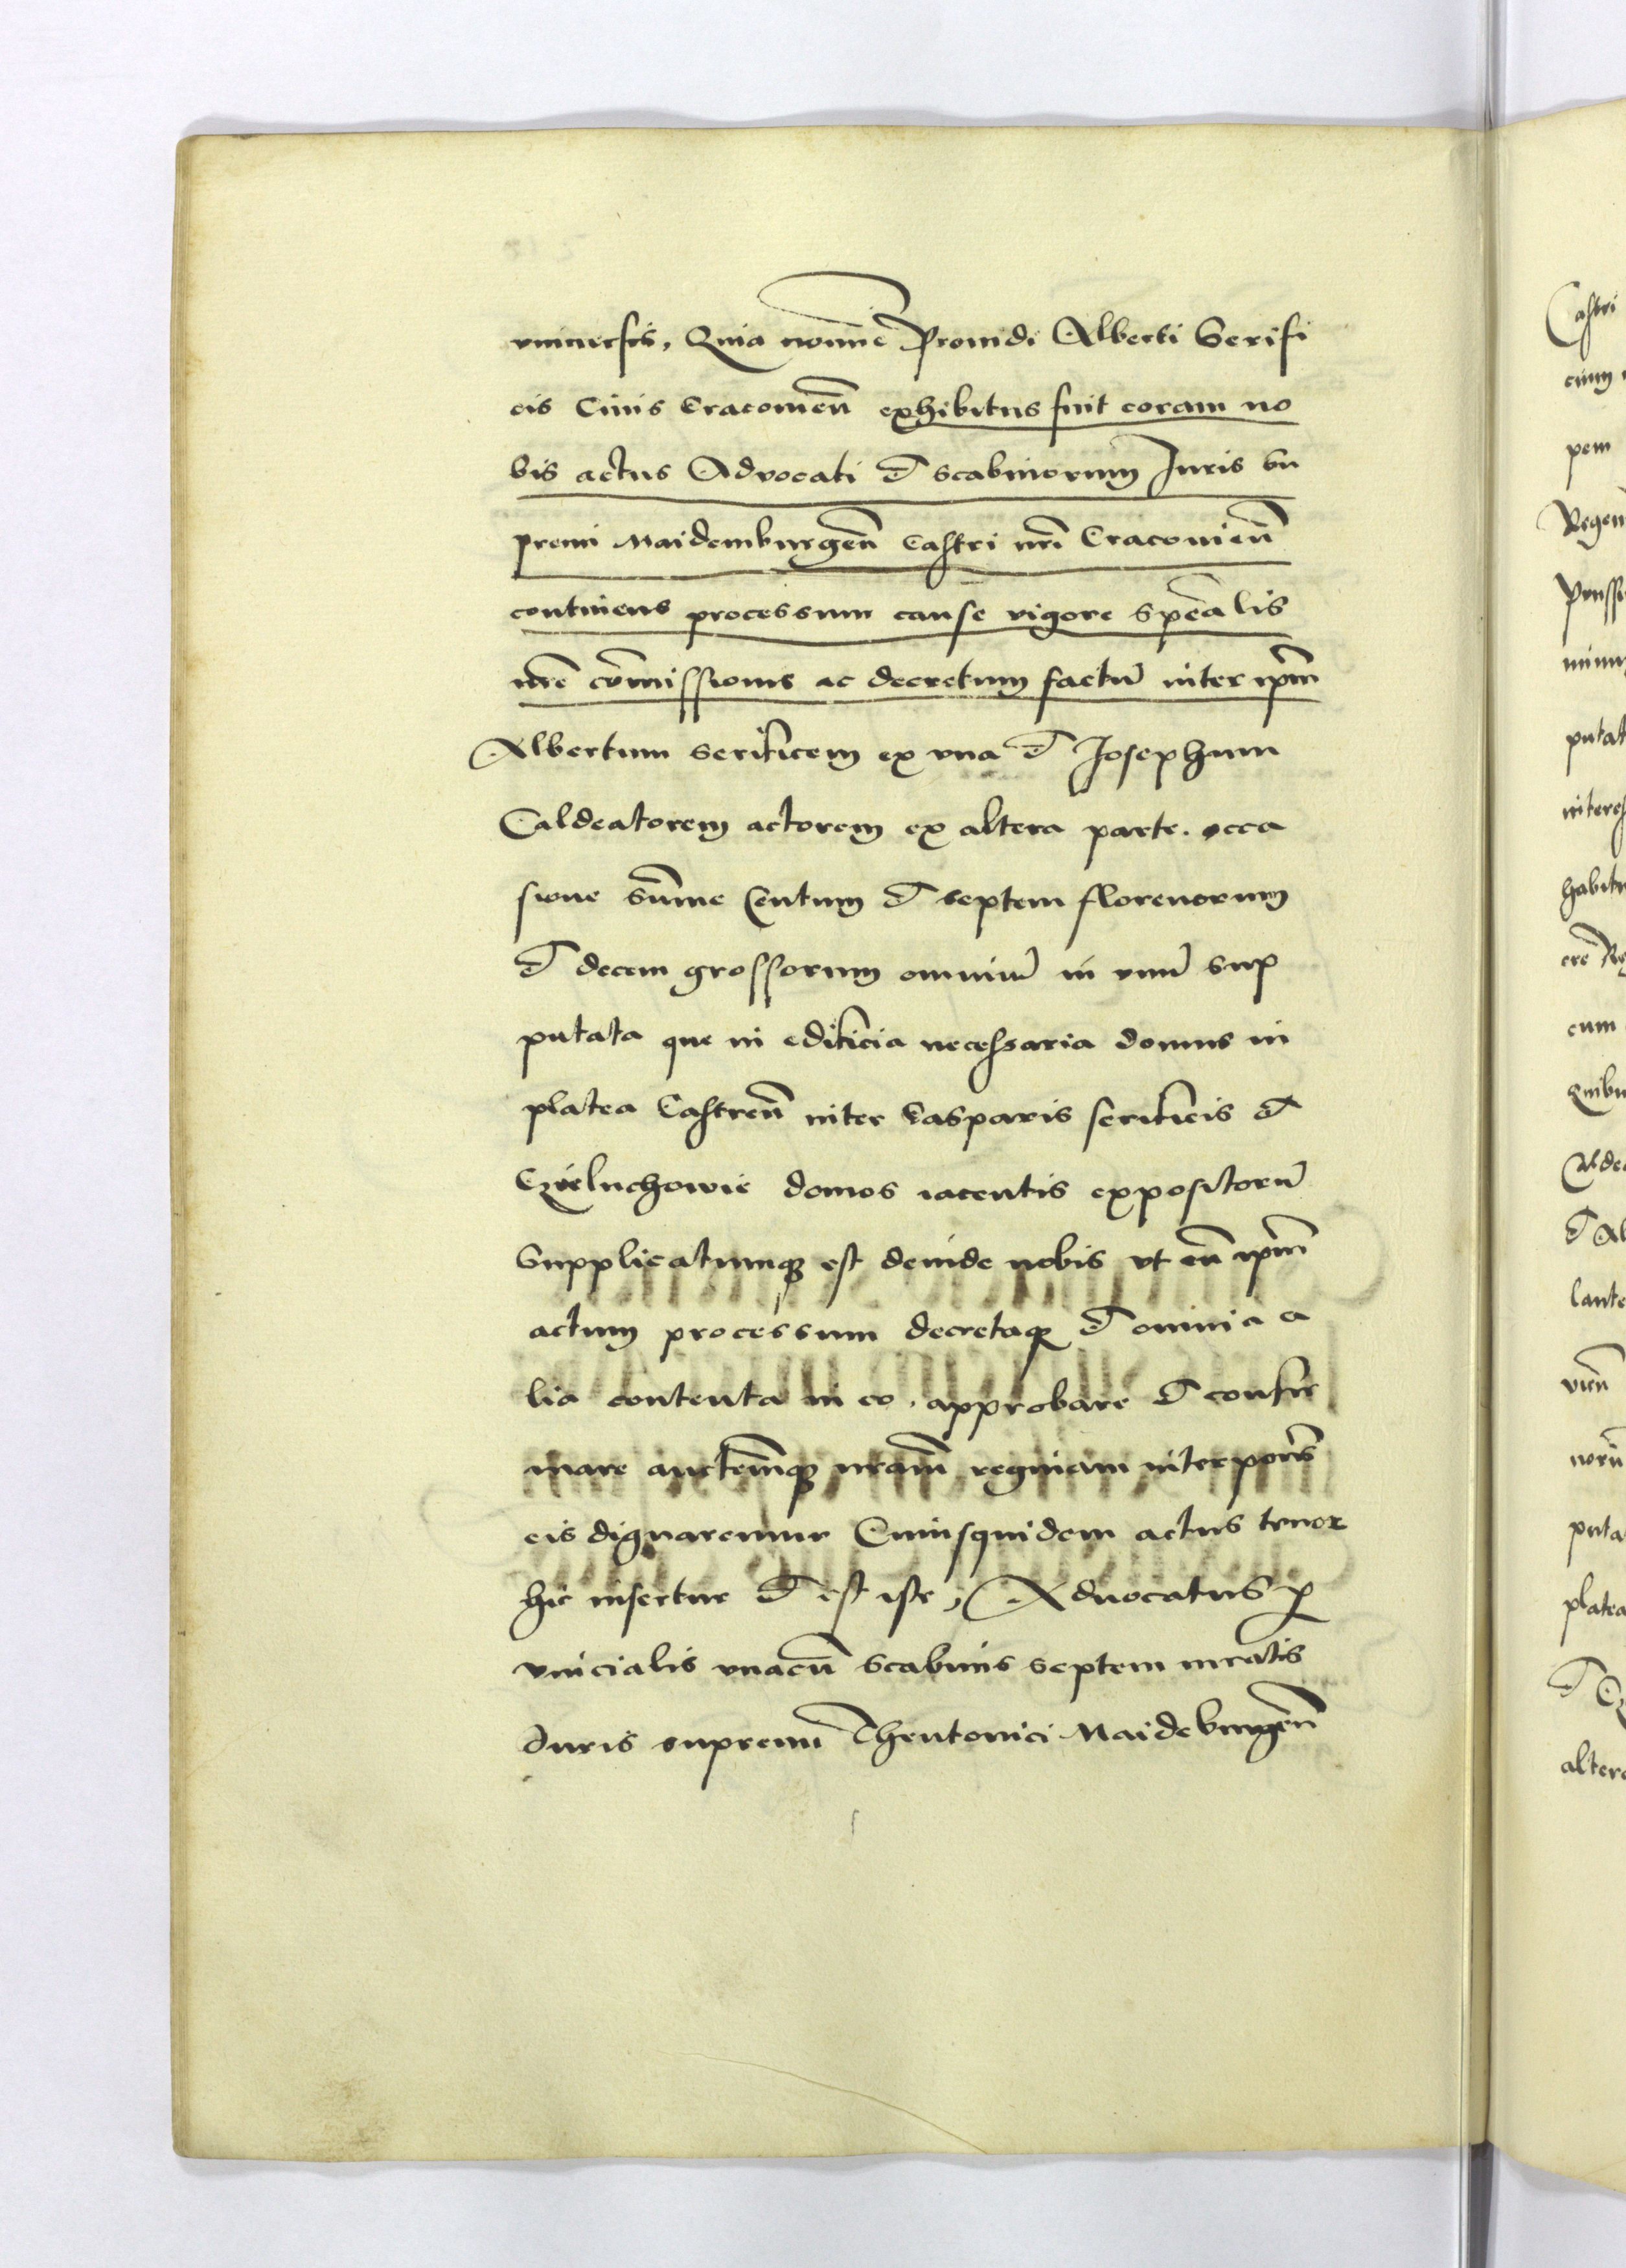 vniuersis, Quia nomine Prouidi Alberti Serifi
cis Ciuis Cracouien̄ exhibitus fuit coram no
bis actus Advocati et scabinorum Iuris su
premi Maidemburgen̄ Castri nr̄i Cracouien̄
continens processum cause vigore sp̄ealis
nr̄e com̄issionis ac decretum factū inter ip̄m
Albertum serificem ex vna et Josephum
Caldeatorem actorem ex altera parte. occa
sione sum̄e Centum et septem florenorum
et decem grossorum omniū in vnū sup
putata que in edificia necessaria domus in
platea Castren̄ inter Casparis serificis et
domos iacentis expositorū
Supplicatumq3 est deinde nobis vt eū ip̄m
actum processum decretaq3 et omnia a
lia contenta in eo, approbare et confir
mare auctem̄q3 nr̄am̄ regniam interpon̄s
eis dignaremur Cuiusquidem actus tenor
hic insertur et est iste, Aduocatus p̱
vincialis vnacū scabinis septem iuratis
Iuris supremi Theutonici Maideburgen̄
Castri
pem
putat
cum
platea